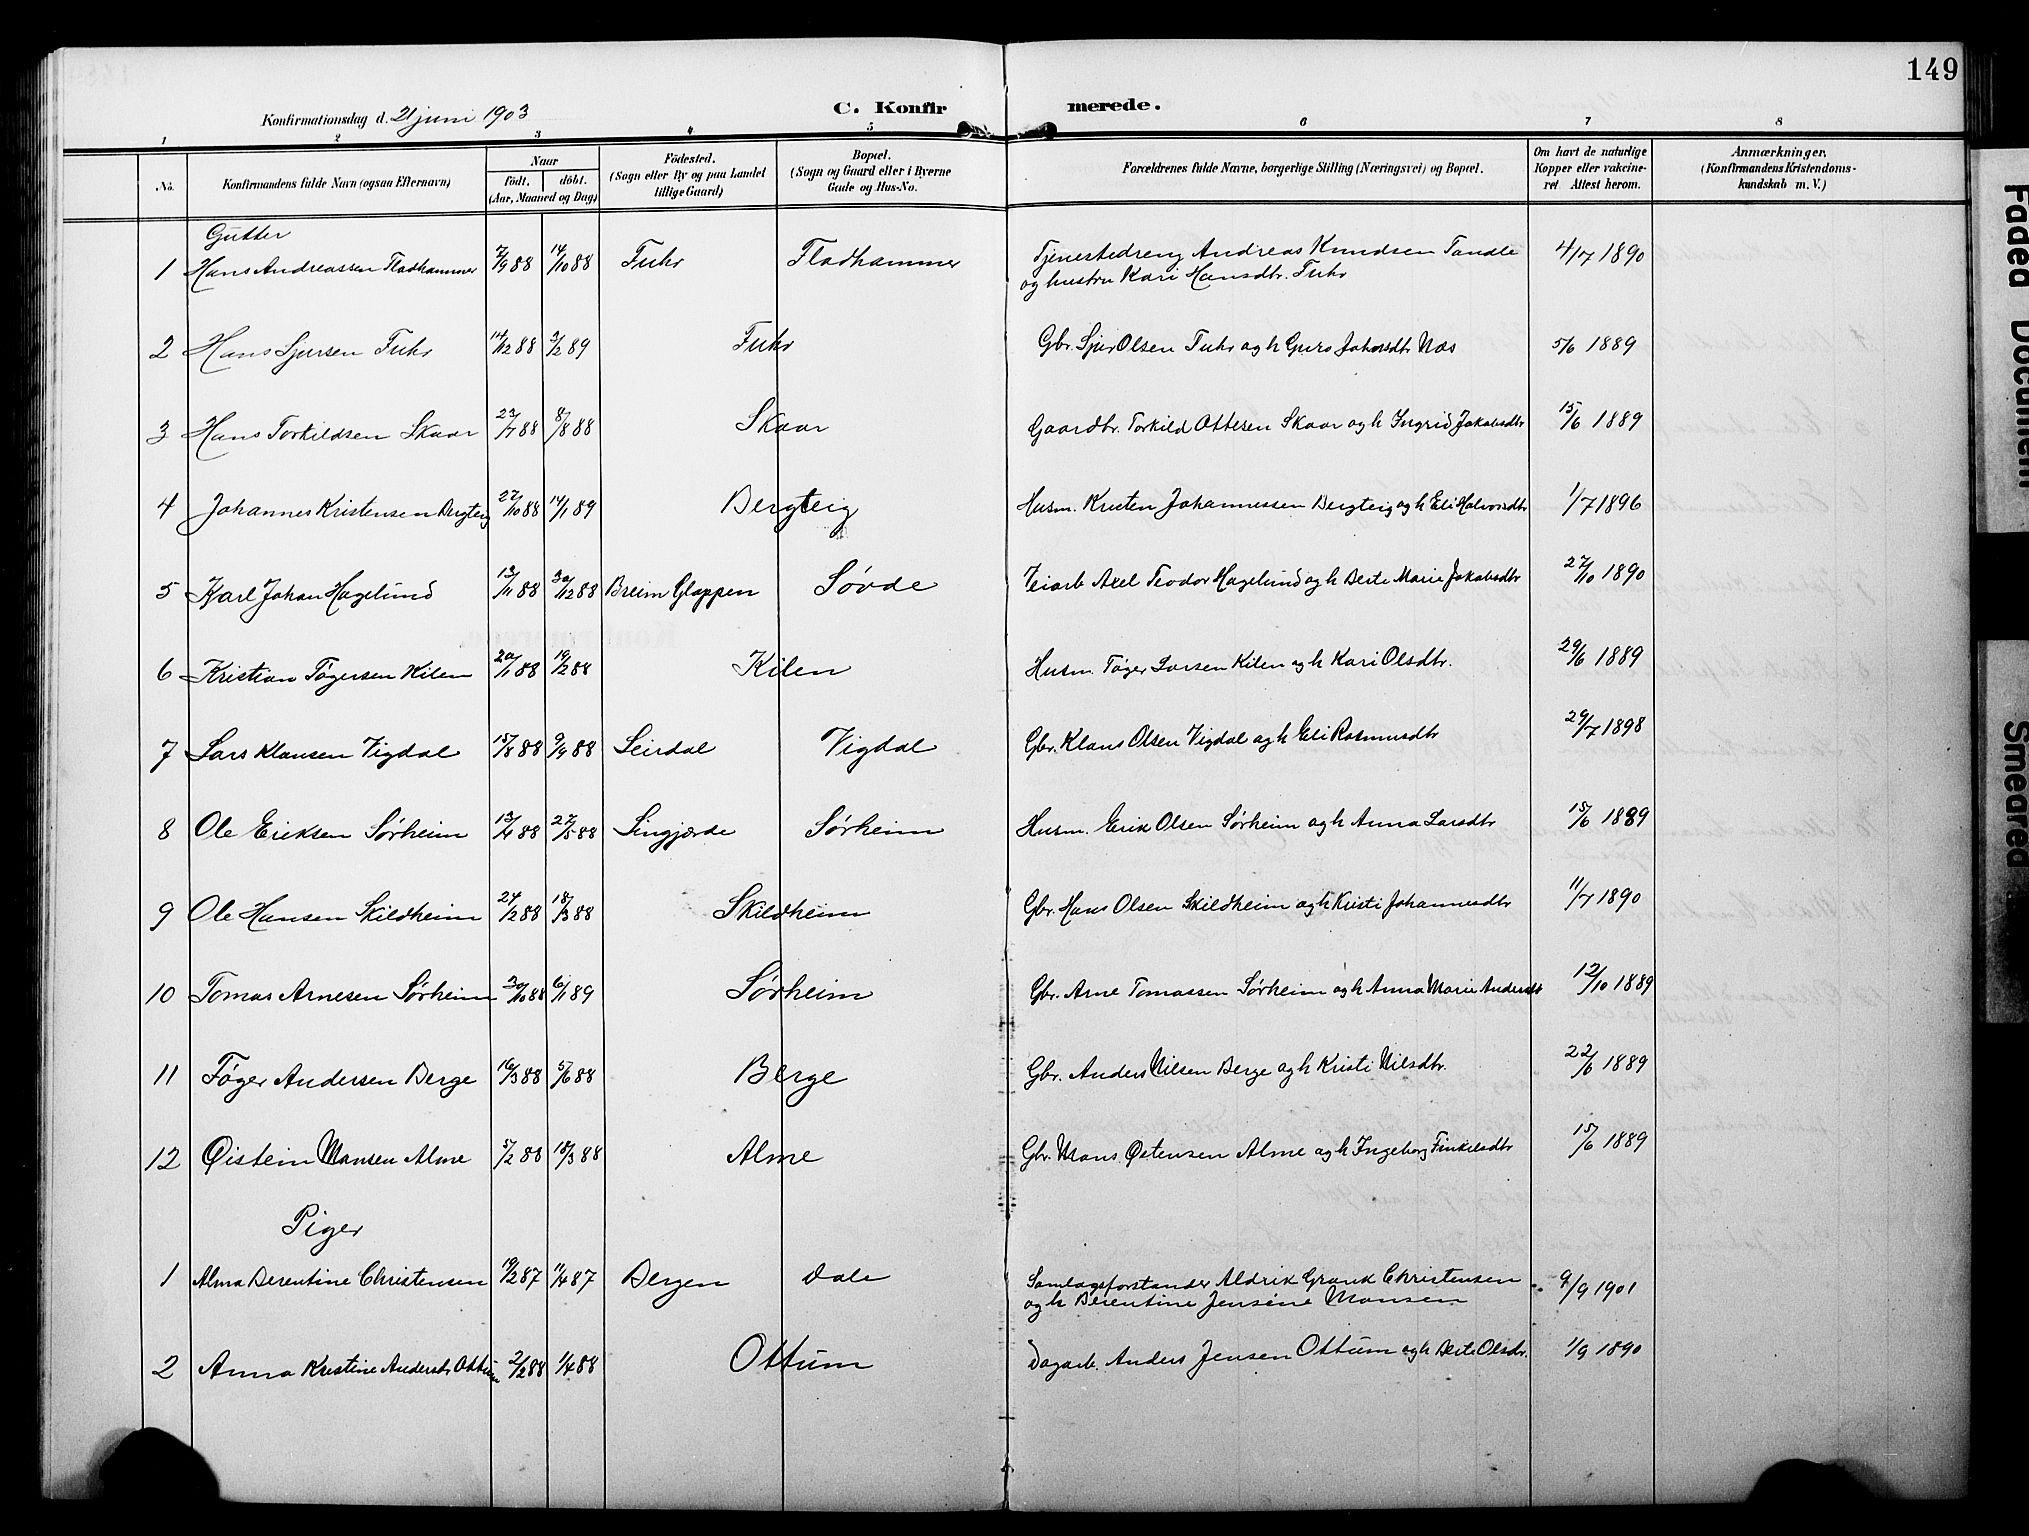 149
Konfirmationsdag d. 21 juni 1903
C. Konfir merede.
1 2 3 4 5 6 7 8
No. Konfirmandens fulde Navn (ogsaa Efternavn) Naar Födested. Bopæl. Forældrenes fulde Navne, borgerlige Stilling (Næringsvei) og Bopæl. Om havt de naturlige Anmærkninger.
Födt. döbt. (Sogn eller By og paa Landet (Sogn og Gaard eller i Byerne Kopper eller vakcine- (Konfirmandens Kristendoms-
(Aar, Maaned og Dag) tillige Gaard) Gade og Hus-No. ret Attest herom. kundskab m. V.)
Gutter
1 Hans Andreassen Fladhammer 7/9 88 14/10 88 Fuhr Fladhammer Tjenestedreng Andreas Knudsen Tandle 4/7 1890
og hustru Kari Hansdtr. Fuhr
2 Hans Sjursen Fuhr 14/12 88 3/2 89 Fuhr Gbr. Sjur Olsen Fuhr og h Guro Johnsdtr Næs 5/6 1889
3 Hans Torkildsen Skaar 23/7 88 8/8 88 Skaar Gaardbr. Torkild Ottesen Skaar og h Ingrid Jakobsdtr 15/6 1889
4 Johannes Kristensen Bergteig 27/10 88 14/1 89 Bergteig Husm. Kristen Johannessen Bergteig og h Eli Halvorsdtr 1/7 1896
5 Karl Johan Hagelund 13/11 88 30/12 88 Breim Gloppen Søvde Veiarb Axel Teodor Hagelund og h Berte Marie Jakobsdtr 27/10 1890
6 Kristian Tøgersen Kilen 20/1 88 19/2 88 Kilen Husm. Tøger Larsen Kilen og h Kari Olsdtr. 29/6 1889
7 Lars Klausen Vigdal 15/8 88 9/9 88 Leirdal Vigdal Gbr. Klaus Olsen Vigdal og h Eli Rasmusdtr 29/7 1898
8 Ole Eriksen Sørheim 13/4 88 27/5 88 Lingjærde Sørheim Husm. Erik Olsen Sørheim og h Anna Larsdtr 15/6 1889
9 Ole Hansen Skildheim 24/2 88 18/3 88 Skildheim Gbr. Hans Olsen Skildheim og h Kristi Johannesdtr 11/7 1890
10 Tomas Arnesen Sørheim 30/10 88 6/1 89 Sørheim Gbr. Arne Tomassen Sørheim og h Anna Marie Andersdtr 12/10 1889
11 Tøger Andersen Berge 16/3 88 5/6 88 Berge Gbr. Anders Nilsen Berge og h Kristi Nilsdtr. 22/6 1889
12 Øistein Monsen Alme 5/2 88 18/3 88 Alme Gbr. Mons Østensen Alme og h Ingeborg Finkelsdtr 15/6 1889
Piger
1 Alma Berentine Christensen 19/2 87 11/4 87 Bergen Dale Samlagsforstander Aldrik Grank Christensen 9/9 1901
og h Berentine Jensine Monsen
2 Anna Kristine Andersdtr Ottum 2/2 88 1/4 88 Ottum Dagarb. Anders Jensen Ottum og h Berte Olsdr. 1/9 1890
Faded Document
Smeared